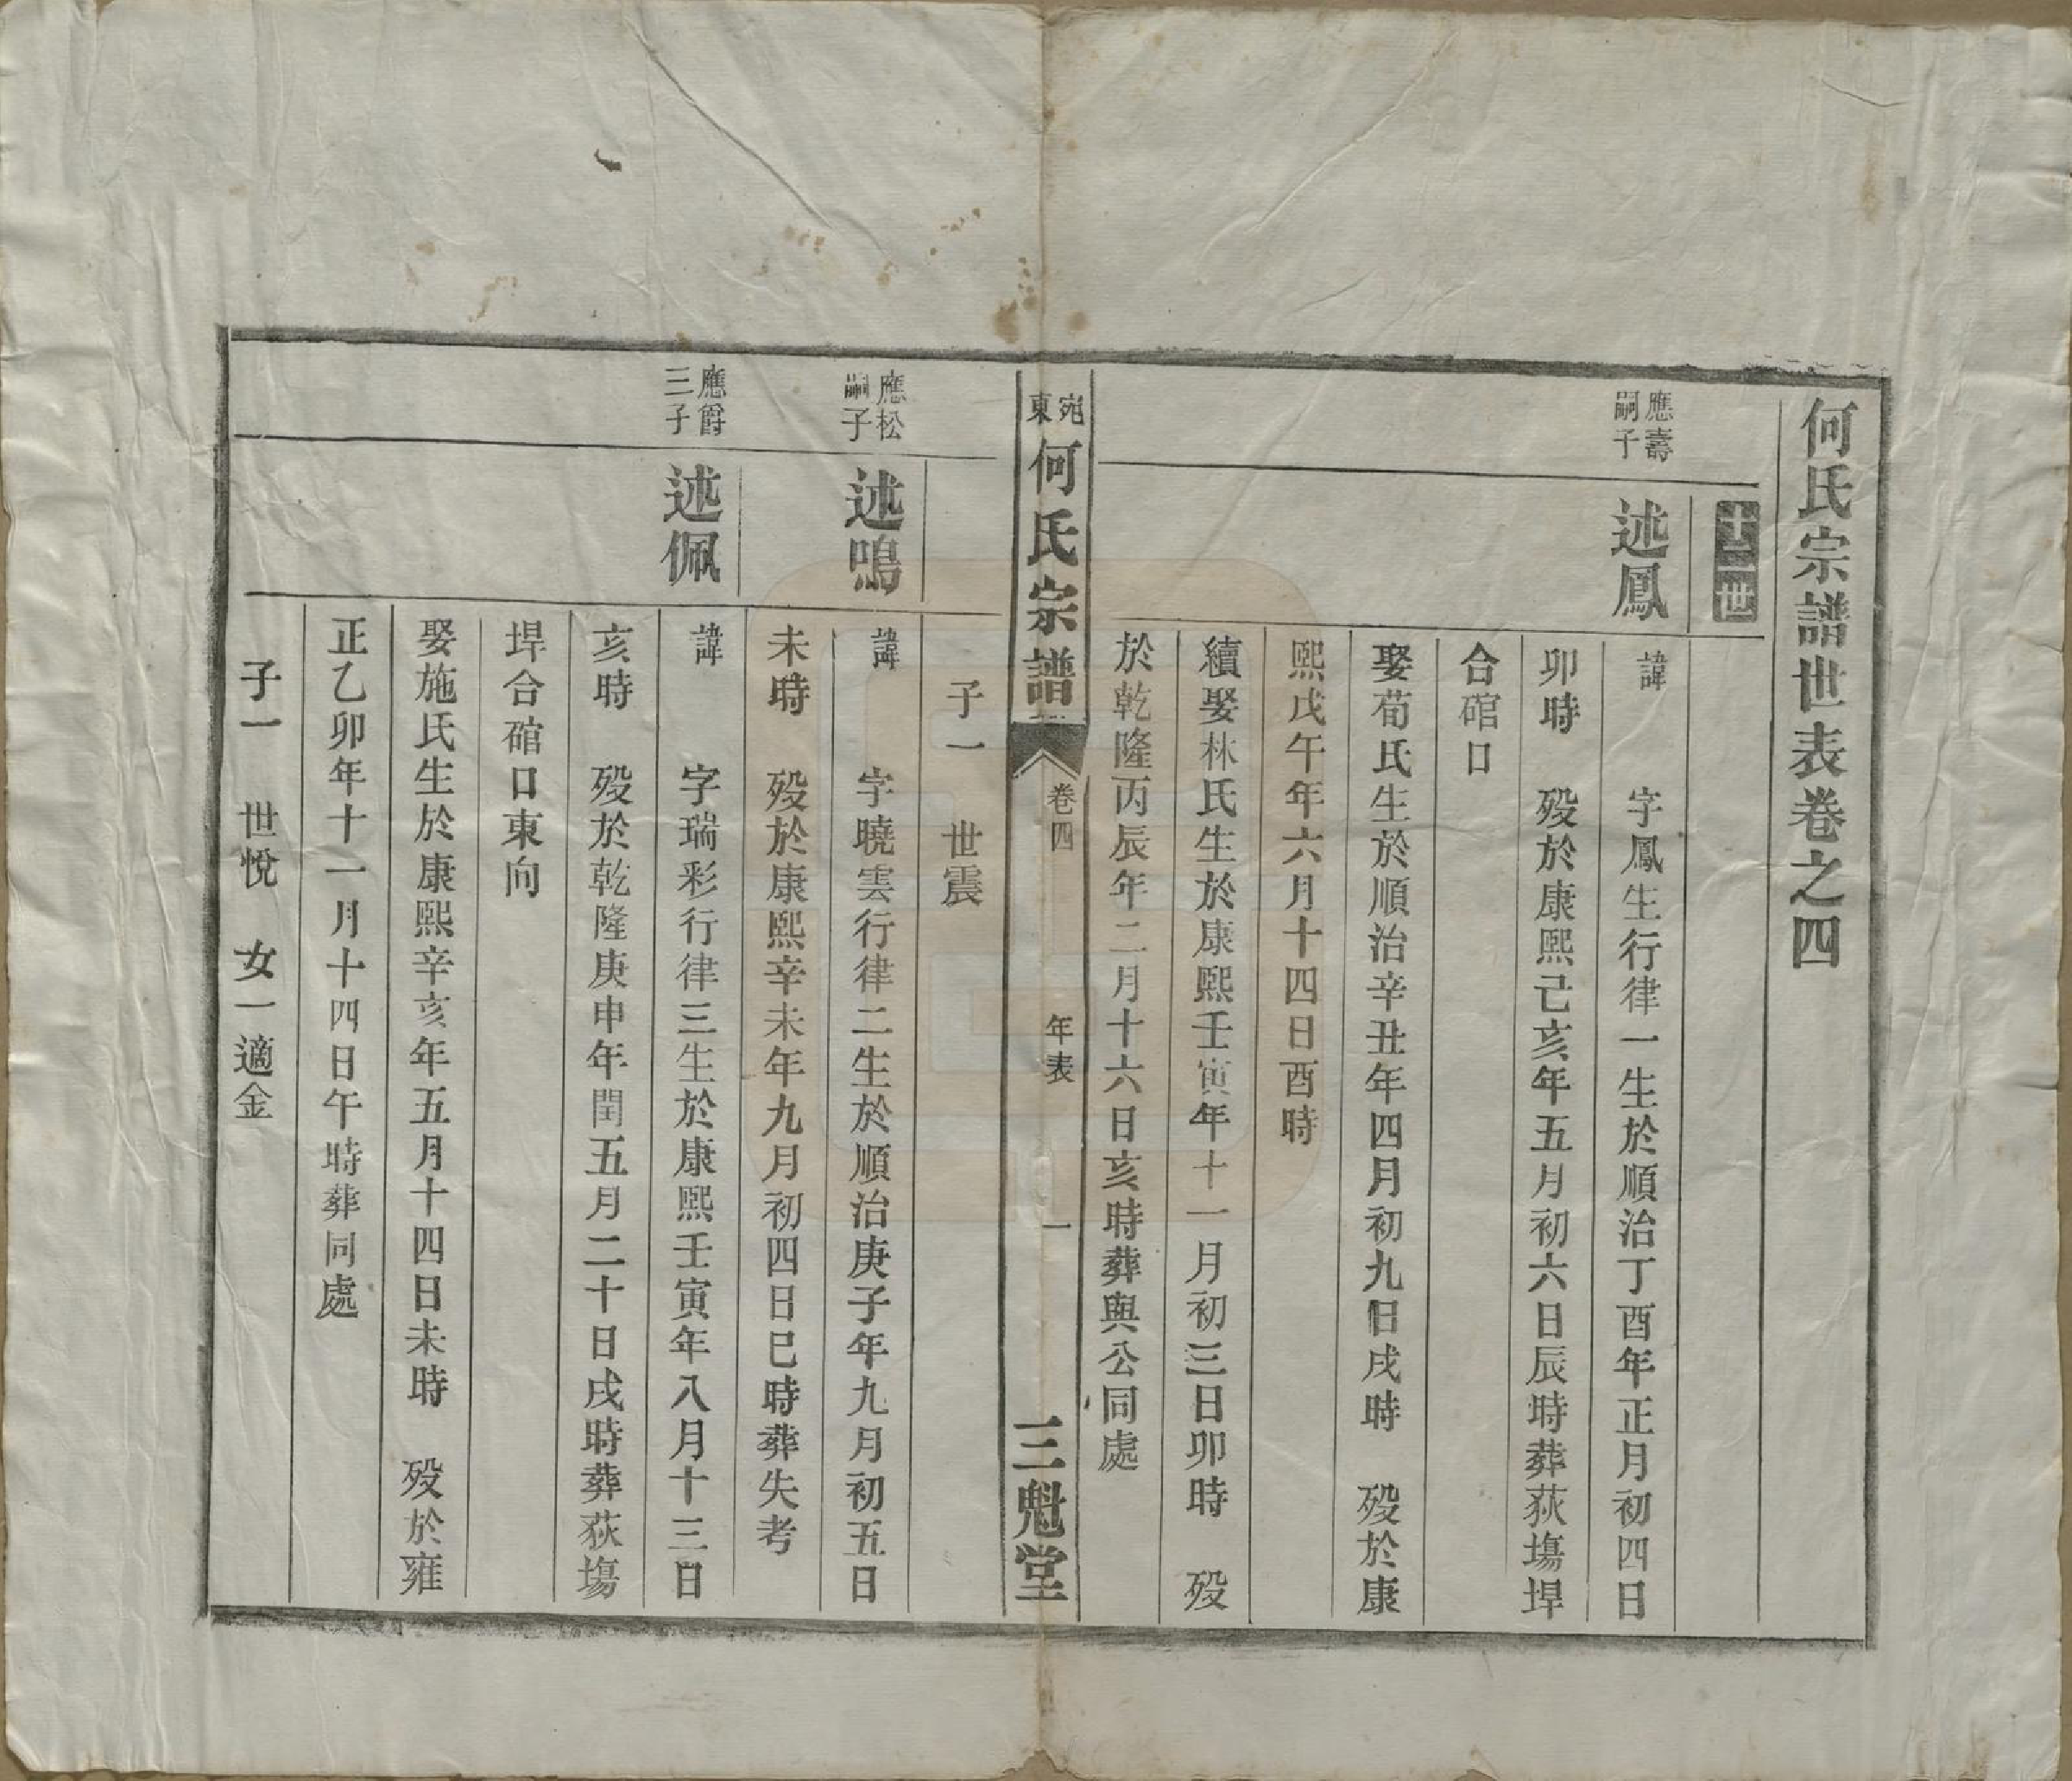 何氏宗譜世表卷之四
十二世
應壽嗣子
述鳳
諱 字鳳生行律一生於順治丁酉年正月初四日
卯時 歿於康熙己亥年五月初六日辰時葬荻塲垾
合碹口
娶荀氏生於順治辛丑年四月初九日戌時 歿於康
熙戊午年六月十四日酉時
續娶林氏生於康熙壬寅年十一月初三日卯時 歿
於乾隆丙辰年二月十六日亥時葬與公同處
宛東何氏宗譜 卷四 年表 一 三魁堂
子一 世震
應松嗣子
述鳴
諱 字曉雲行律二生於順治庚子年九月初五日
未時 歿於康熙辛未年九月初四日巳時葬失考
應爵三子
述佩
諱 字瑞彩行律三生於康熙壬寅年八月十三日
亥時 歿於乾隆庚申年閏五月二十日戌時葬荻塲
垾合碹口東向
娶施氏生於康熙辛亥年五月十四日未時 歿於雍
正乙卯年十一月十四日午時葬同處
子一 世悅 女一適金